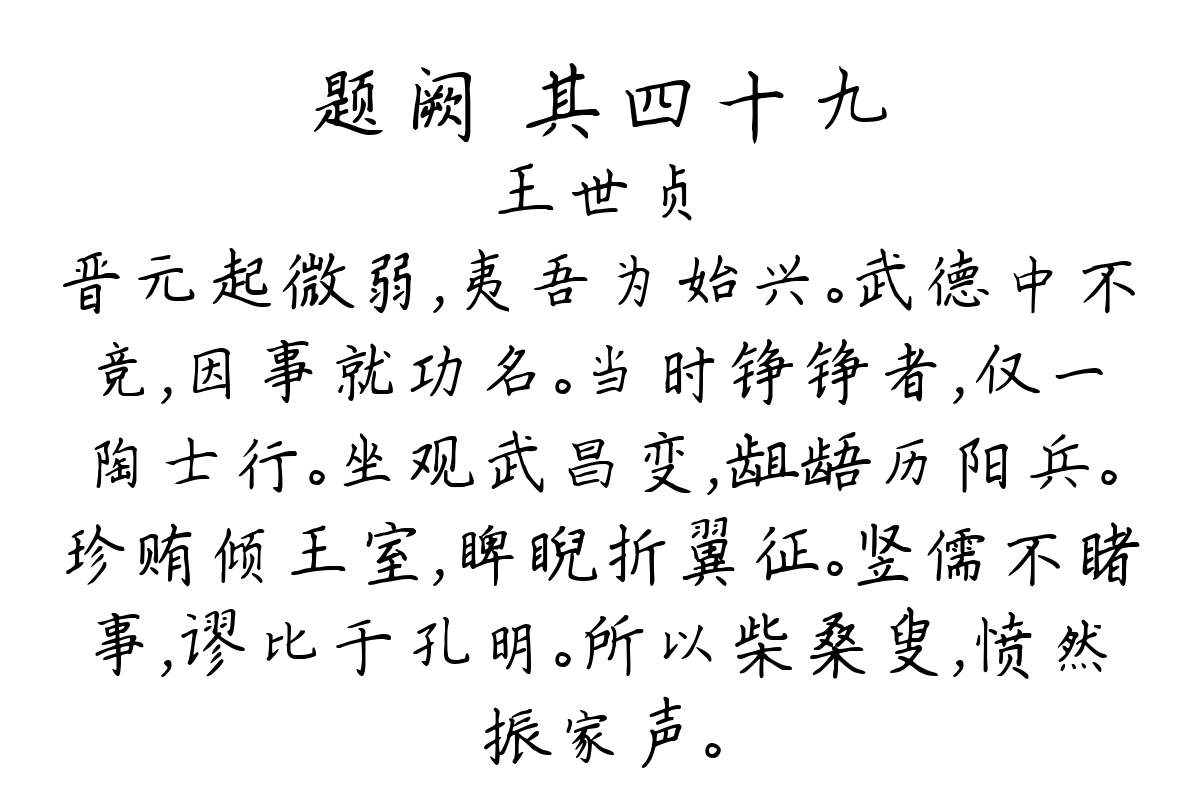 题阙 其四十九
王世贞
晋元起微弱,夷吾为始兴。武德中不
竞,因事就功名。当时铮铮者,仅一
陶士行。坐观武昌变,龃龉历阳兵。
珍贿倾王室,睥睨折翼征。竖儒不睹
事,谬比于孔明。所以柴桑叟,愤然
振家声。